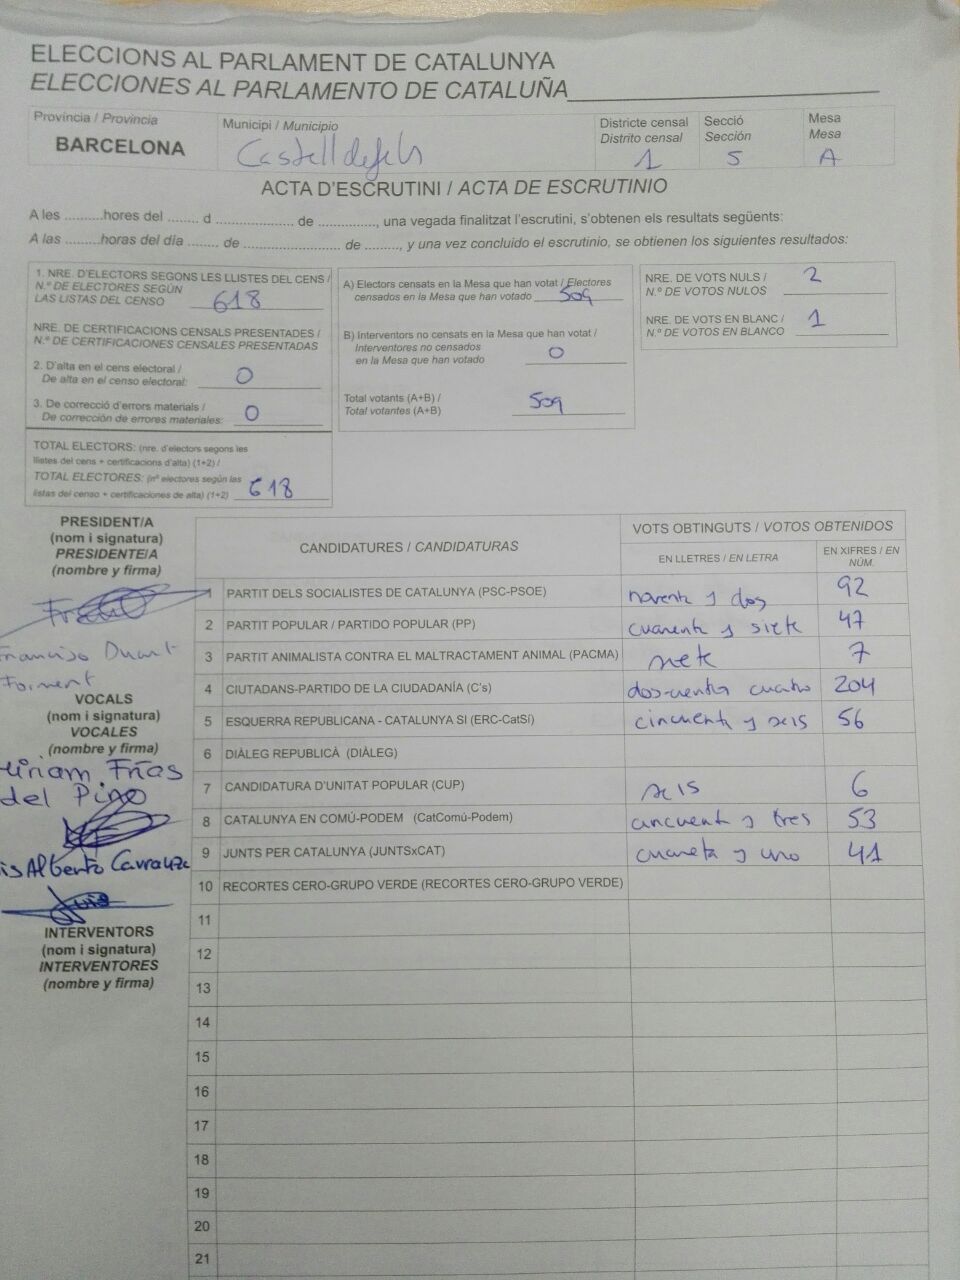 ELECCIONS AL PARLAMENT DE CATALUNYA
ELECCIONES AL PARLAMENTO DE CATALUÑA
Província / Provincia
BARCELONA
Municipi / Municipio
Castelldefels
Districte censal
Distrito censal
1
Secció
Sección
5
Mesa
Mesa
A
ACTA D'ESCRUTINI / ACTA DE ESCRUTINIO
A les ..........hores del ........ d .................... de ..............., una vegada finalitzat l'escrutini, s'obtenen els resultats següents:
A las ..........horas del día ........ de ......................... de ........., y una vez concluido el escrutinio, se obtienen los siguientes resultados:
1. NRE. D'ELECTORS SEGONS LES LLISTES DEL CENS /
N.º DE ELECTORES SEGÚN
LAS LISTAS DEL CENSO 618
NRE. DE CERTIFICACIONS CENSALS PRESENTADES /
N.º DE CERTIFICACIONES CENSALES PRESENTADAS
2. D'alta en el cens electoral /
De alta en el censo electoral: 0
3. De correcció d'errors materials /
De corrección de errores materiales: 0
TOTAL ELECTORS: (nre. d'electors segons les
llistes del cens + certificacions d'alta) (1+2) /
TOTAL ELECTORES: (nº electores según las
listas del censo + certificaciones de alta) (1+2) 618
A) Electors censats en la Mesa que han votat / Electores
censados en la Mesa que han votado 509
B) Interventors no censats en la Mesa que han votat /
Interventores no censados
en la Mesa que han votado 0
Total votants (A+B) /
Total votantes (A+B) 509
NRE. DE VOTS NULS /
N.º DE VOTOS NULOS 2
NRE. DE VOTS EN BLANC /
N.º DE VOTOS EN BLANCO 1
PRESIDENT/A
(nom i signatura)
PRESIDENTE/A
(nombre y firma)
Francisco Duart
Forment
VOCALS
(nom i signatura)
VOCALES
(nombre y firma)
iriam Frías
del Pino
is Alberto Carranza
Luis
INTERVENTORS
(nom i signatura)
INTERVENTORES
(nombre y firma)
CANDIDATURES / CANDIDATURAS
VOTS OBTINGUTS / VOTOS OBTENIDOS
EN LLETRES / EN LETRA
EN XIFRES / EN NÚM.
1 PARTIT DELS SOCIALISTES DE CATALUNYA (PSC-PSOE) noventa y dos 92
2 PARTIT POPULAR / PARTIDO POPULAR (PP) cuarenta y siete 47
3 PARTIT ANIMALISTA CONTRA EL MALTRACTAMENT ANIMAL (PACMA) siete 7
4 CIUTADANS-PARTIDO DE LA CIUDADANÍA (C's) doscientos cuatro 204
5 ESQUERRA REPUBLICANA - CATALUNYA SI (ERC-CatSí) cincuenta y seis 56
6 DIÀLEG REPUBLICÀ (DIÀLEG)
7 CANDIDATURA D'UNITAT POPULAR (CUP) seis 6
8 CATALUNYA EN COMÚ-PODEM (CatComú-Podem) cincuenta y tres 53
9 JUNTS PER CATALUNYA (JUNTSxCAT) cuareta y uno 41
10 RECORTES CERO-GRUPO VERDE (RECORTES CERO-GRUPO VERDE)
11
12
13
14
15
16
17
18
19
20
21